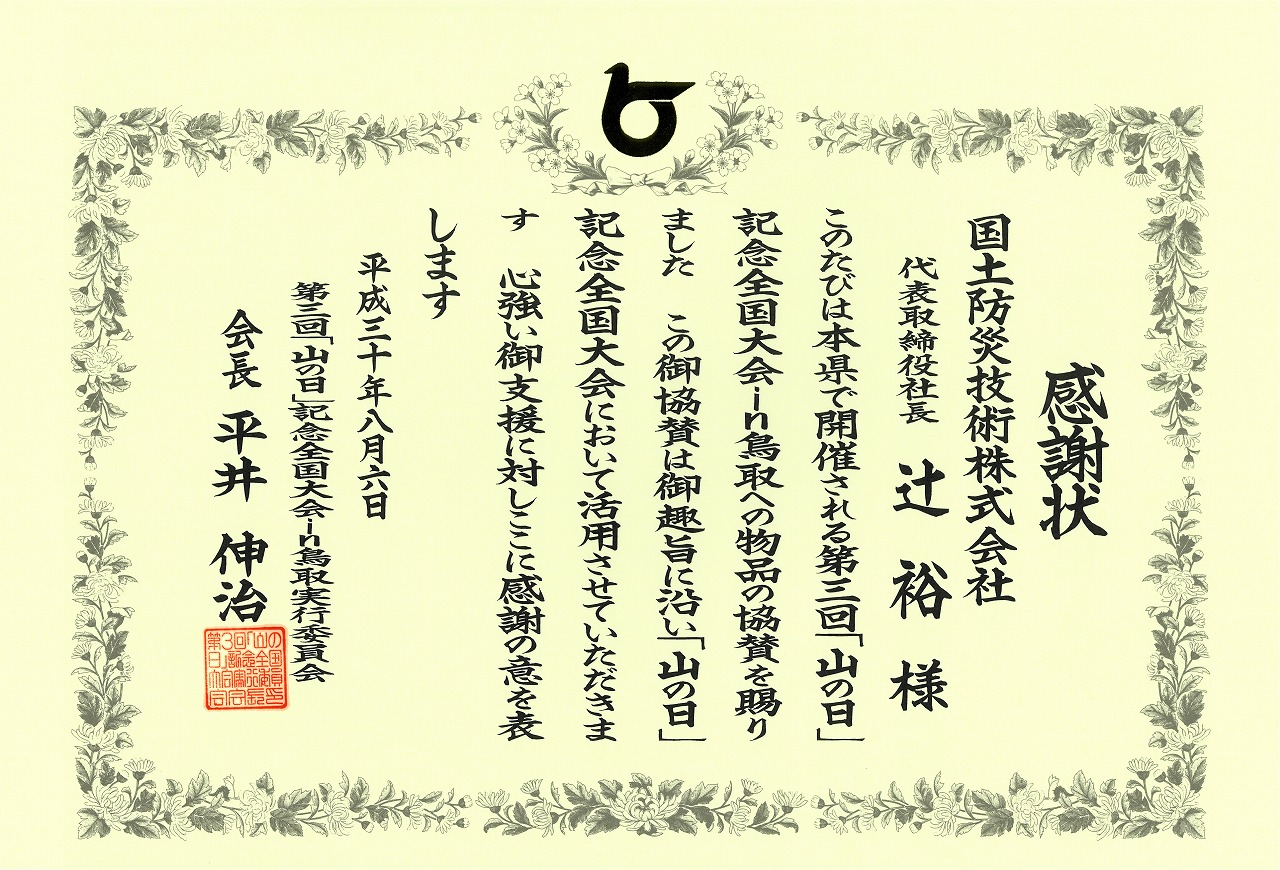 感謝状
国土防災技術株式会社
代表取締役社長 辻 裕 様
このたびは本県で開催される第三回「山の日」
記念全国大会in鳥取への物品の協賛を賜り
ました この御協賛は御趣旨に沿い「山の日」
記念全国大会において活用させていただきま
す 心強い御支援に対しここに感謝の意を表
します
平成三十年八月六日
第三回「山の日」記念全国大会in鳥取実行委員会
会長 平井 伸治